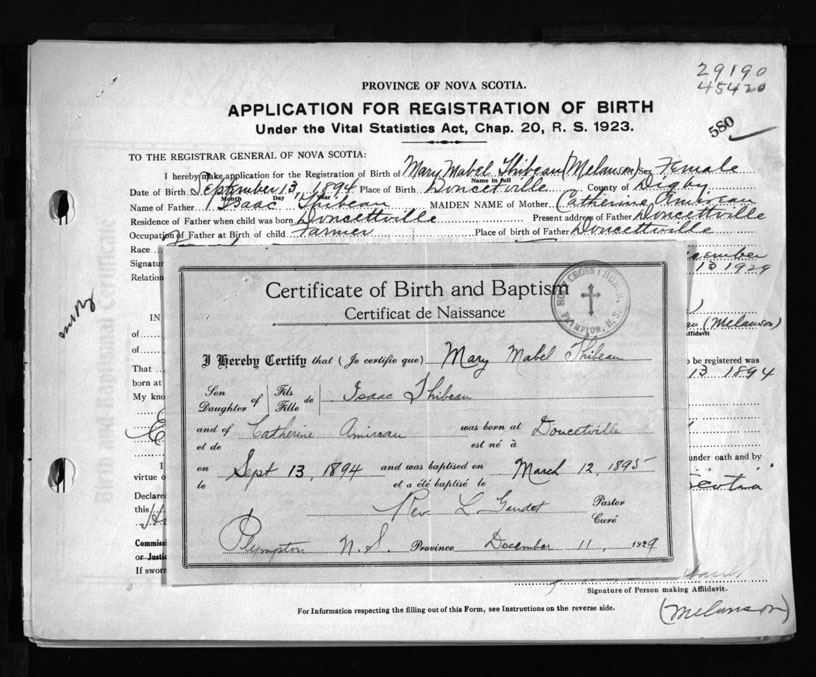 29190
45420
PROVINCE OF NOVA SCOTIA.
APPLICATION FOR REGISTRATION OF BIRTH
Under the Vital Statistics Act, Chap. 20, R. S. 1923.
580
TO THE REGISTRAR GENERAL OF NOVA SCOTIA:
I hereby make application for the Registration of Birth of Mary Mabel Thibeau (Melanson) Sex Female
Name in full
Date of Birth September 13, 1894 Place of Birth Doncetville County of Digby
Month Day Year
Name of Father Isaac Thibeau MAIDEN NAME of Mother Catherine Amireau
Residence of Father when child was born Doncettville Present address of Father Doncettville
Occupation of Father at Birth of child Farmer Place of birth of Father Doncettville
Race
Signatur
Relation
13 1929
IN
(Melanson)
Affidavit
of
of
That to be registered was
born at 13 1894
My kno
I under oath and by
virtue o Scotia
Declared
this
Commissi
or Justic
If sworn
Certificate of Birth and Baptism
Certificat de Naissance
HOLY CROSS CHURCH
PLYMPTON, N. S.
I Hereby Certify that (Je certifie que) Mary Mabel Thibeau
Son Daughter of Fils Fille de Isaac Thibeau
and of Catherine Amireau was born at Doucetville
et de est né à
on Sept 13, 1894 and was baptised on March 12, 1895
le et a été baptisé le
Rev. L Gaudet Pastor
Curé
Plympton N. S. Province December 11, 1929
Signature of Person making Affidavit.
For Information respecting the filling out of this Form, see Instructions on the reverse side.
(Melanson)
Birth and Baptismal Certificate